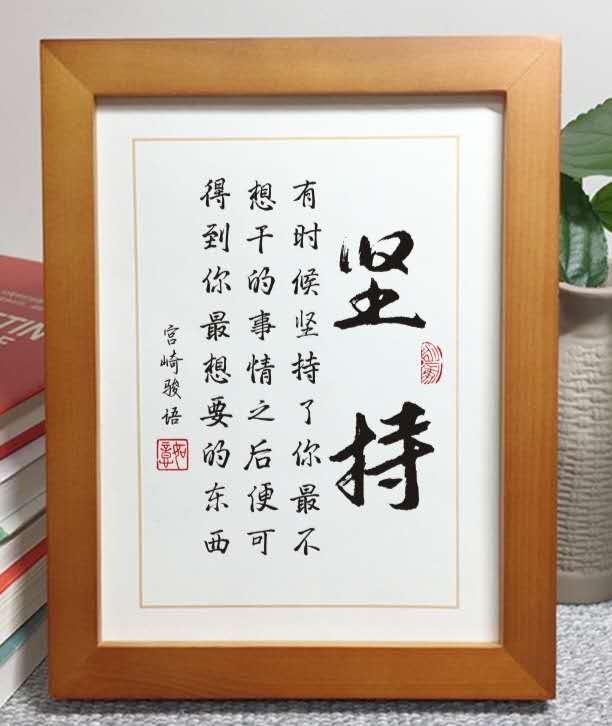 坚持
有时候坚持了你最不
想干的事情之后便可
得到你最想要的东西
宫崎骏语